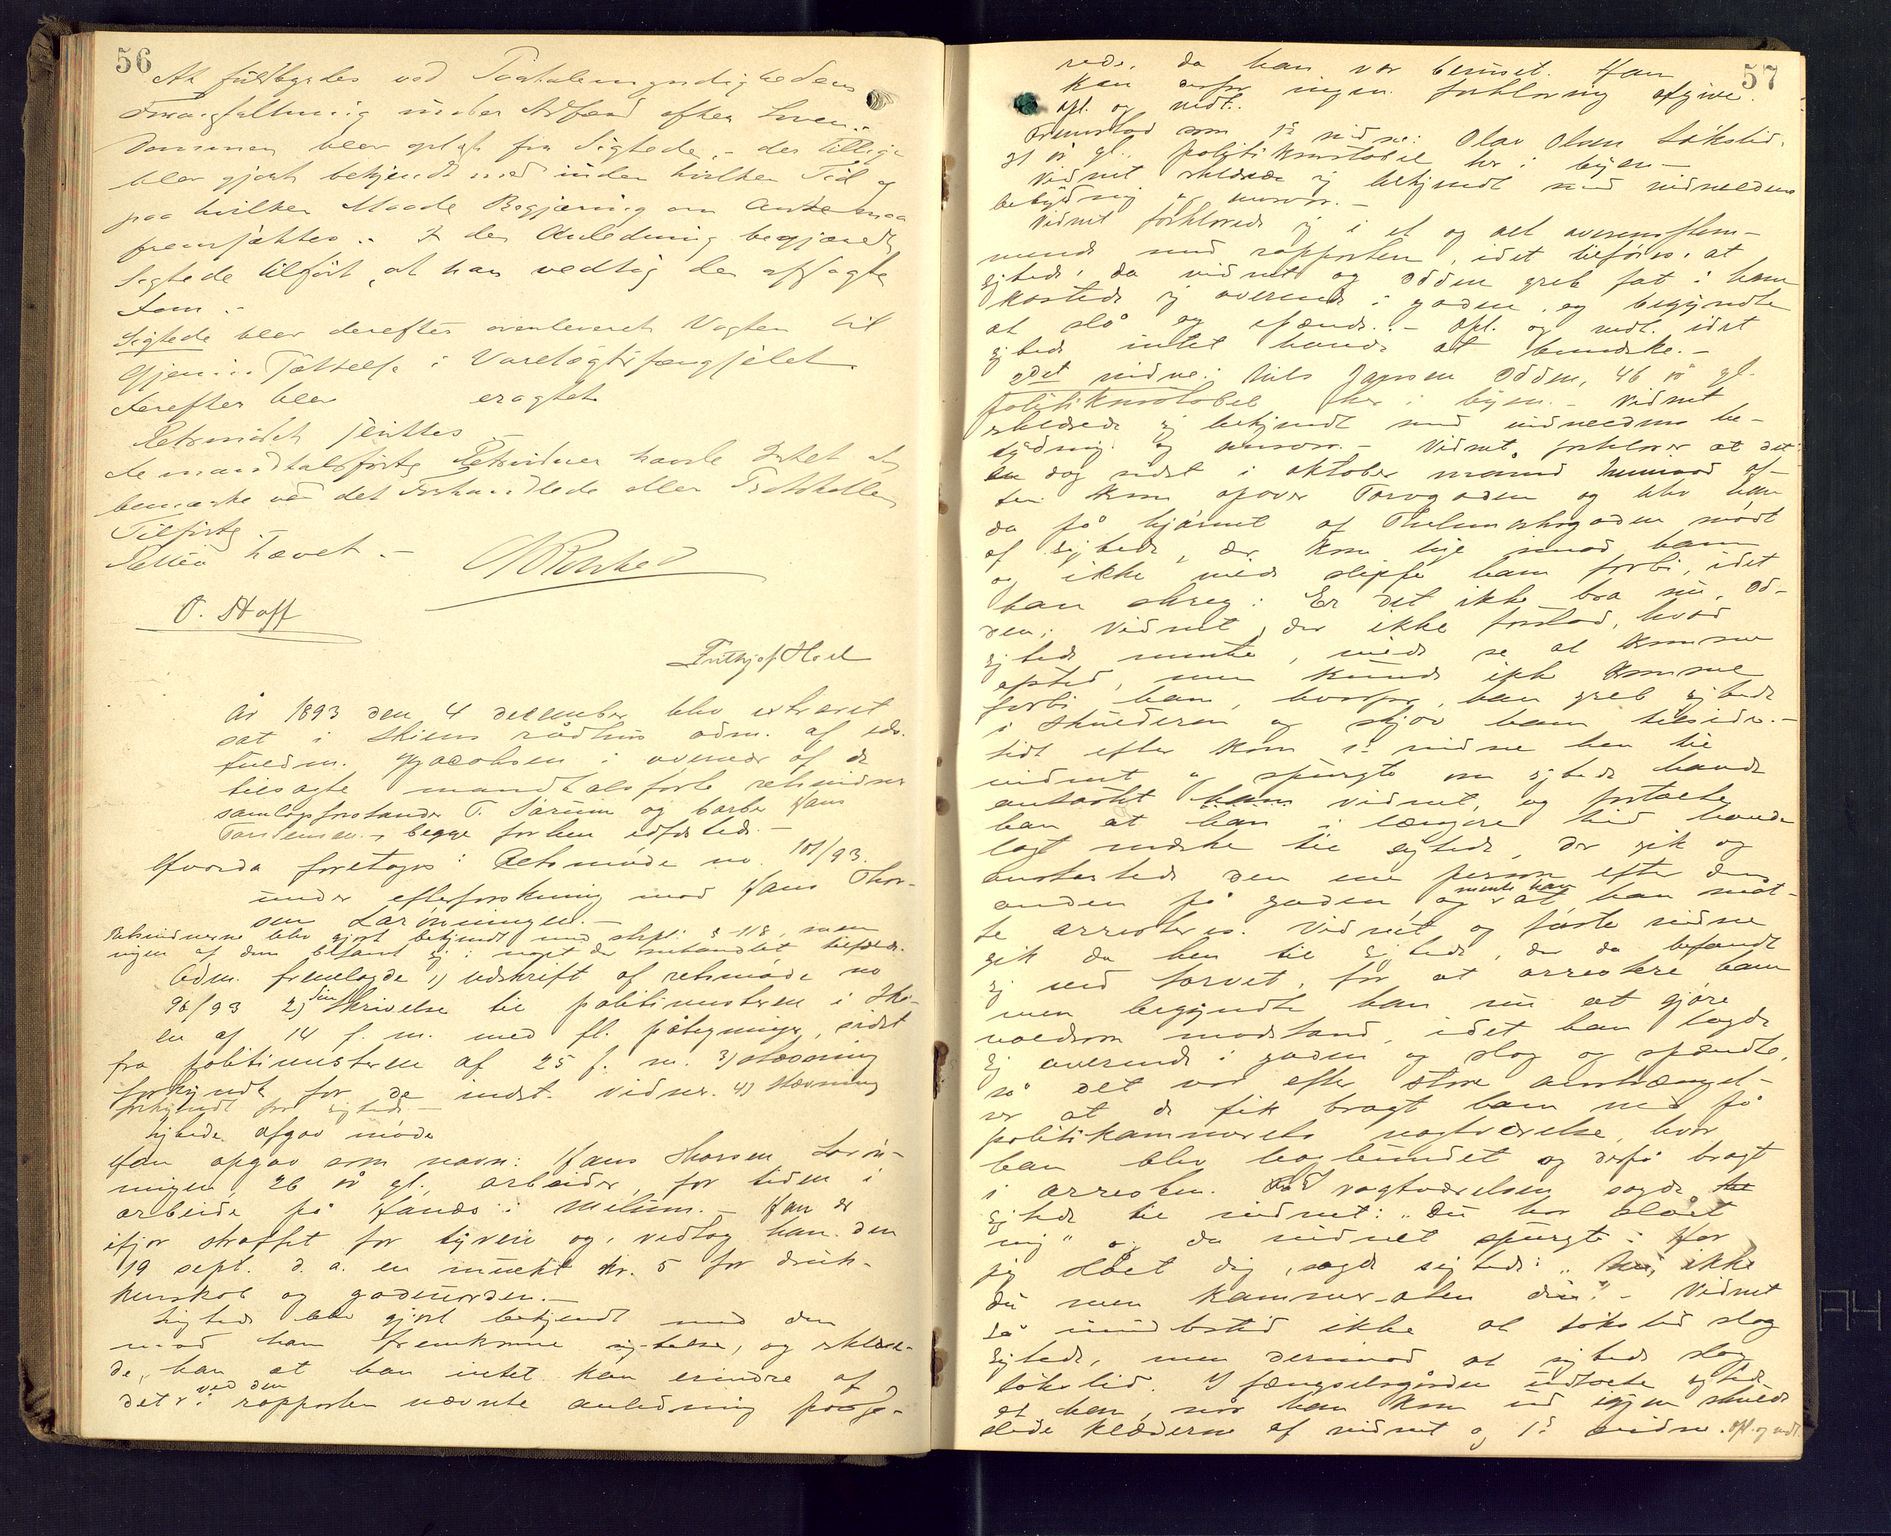 56
At fuldbyrdes ved Paatalemyndighedens
Foranstaltning under Adfærd efter Loven.
Dommen blev oplæst for Sigtede, – der tillige
blev gjort bekjendt med inden hvilken Tid og
paa hvilken Maade Begjæring om Anke maa
fremsættes. I den Anledning begjærede
Sigtede tilført, at han vedtog den afsagte
Dom. –
Sigtede blev derefter overleveret Vagten til
Gjenindsættelse i Varetægtsfængslet
derefter blev eragtet
Retsmødet sluttes –
de mandtalsførte Retsvidner havde Intet at
bemærke ved det Forhandlede eller Protokollen
Tilførte
Retten hævet. –
O. Hoff
Frithjof Hoel
År 1893 den 4 december blev extraret
sat i Skiens rådhus adm. af eds.
fuldm. Jacobsen i overvær af de
tilsagte mandtalsførte retsvidner
samlagsforstander T. Sørum og barber Hans
Torstensen, begge forhen edfæstede. –
Hvorda foretoges: Retsmøde no. 101/93
under efterforskning mod Hans Thor-
sen Larønningen. –
Retsvidnerne blev gjort bekjendt med strpl. § 118, uden
ingen af dem befandt sig i noget der omhandlet tilfælde.
Adm. fremlagde 1) udskrift af retsmøde no
96/93 2) sin skrivelse til politimesteren i Ski-
en af 14 f. m. med fl. påtegninger, sidst
fra politimesteren af 25 f. m. 3) stævning
forkyndt for de indst. vidner. 4) stævning
forkyndt for sigtede –
Sigtede afgav møde
Han opgav som navn: Hans Thorsen Larøn-
ningen, 26 år gl., arbeider, for tiden i
arbeide på Fandes i Melum. – Han er
ifjor straffet for tyveri og vedtog han den
19 sept. d. a. en mulkt kr. 5 for druk-
kenskab og gadeuorden. –
Sigtede blev gjort bekjendt med den
mod ham fremkomne sigtelse, og erklære-
de, han at han intet kan erindre af
det ved den i rapporten nævnte anledning passe-
57
rede, da han var beruset. Han
kan derfor ingen forklaring afgive.
Opl. og vedt.
Fremstod som 1s vidne: Olav Olsen Løkslid,
31 år gl., politikonstabel her i byen –
Vidnet erklærede sig bekjendt med vidneedens
betydning og ansvar. –
Vidnet forklarede sig i et og alt overensstem-
mende med rapporten, idet tilføies, at
sigtede, da vidnet og Odden greb fat i ham
kastede sig overende i gaden, og begyndte
at slå og spænde. – Opl. og vedt. idet
sigtede intet havde at bemærke. –
2det vidne: Nils Jansen Odden, 46 år gl.
politikonstabel her i byen. – Vidnet
erklærede sig bekjendt med vidneedens be-
tydning og ansvar. – Vidnet forklarer at det
en dag sidst i oktober måned henimod af-
ten kom opover Torvgaden og blev han
da på hjørnet af Thelemarksgaden mødt
af sigtede, der kom lige imod ham
og ikke vilde slippe ham forbi, idet
han skreg: Er det ikke bra nu, Od-
den; Vidnet, der ikke forstod, hvad
sigtede mente, vilde se at komme
afsted, men kunde ikke komme
forbi ham, hvorfor han greb sigtede
i skulderen og skjøv ham tilside. –
Lidt efter kom 1s vidne hen til
vidnet og spurgte om sigtede havde
antastet ham vidnet, og fortalte
han at han i længere tid havde
lagt mærke til sigtede, der gik og
antastede den ene person efter den
anden på gaden og mente han at han måt-
te arresteres. Vidnet og første vidne
gik da hen til sigtede, der da befandt
sig ved torvet, for at arrestere ham
men begyndte han nu at gjøre
voldsom modstand, idet han lagde
sig overende i gaden og slog og spændte,
så det var efter store anstrængel-
ser at de fik bragt ham ned på
politikammerets vagtværelse, hvor
han blev bagbundet og derpå bragt
i arresten. Ved vagtværelsen sagde
sigtede til vidnet: „Du har slået
mig“ og da vidnet spurgte: Har
jeg slået dig, sagde sigtede: „Nei, ikke
du men kammeraten din“. – Vidnet
så imidlertid ikke at Løkslid slog
sigtede, men derimod at sigtede slog
Løkslid. I fængselsgården udtalte sigtede
at han, når han kom ud igjen skulde
slide klæderne af vidnet og 1s vidne. Opl. og vedt.